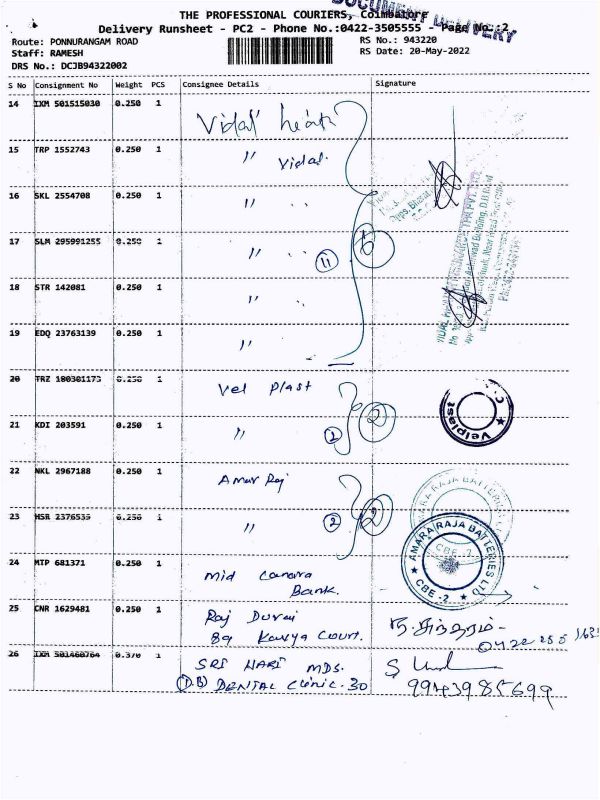 THE PROFESSIONAL COURIERS, Coimbatore
DOCUMENT DELIVERY
Delivery Runsheet - PC2 - Phone No.:0422-3505555 - Page No.:2
Route: PONNURANGAM ROAD
RS No.: 943220
Staff: RAMESH
RS Date: 20-May-2022
DRS No.: DCJB94322002
S No Consignment No Weight PCS Consignee Details Signature
14 IXM 501515030 0.250 1 Vidal heath
15 TRP 1552743 0.250 1 " Vidal.
16 SKL 2554708 0.250 1 "
17 SLM 295991255 0.250 1 " 11 6
18 STR 142081 0.250 1 "
19 EDQ 23763139 0.250 1 "
20 TRZ 180301173 0.250 1 Vel Plast
Velplast
21 KDI 203591 0.250 1 " 2 2
22 NKL 2967188 0.250 1 Amar Raj
23 HSR 2376535 0.250 1 " 2 2
AMARA RAJA BATTERIES LTD
CBE-2
AMARA RAJA BATTERIES LTD
CBE-2
24 MTP 681371 0.250 1 Mid Canara
Bank.
25 CNR 1629481 0.250 1 Raj Durai
89 Kavya Court.
26 IXM 501460764 0.370 1 SRI HARI MDS.
DENTAL Clinic. 30
9943985699